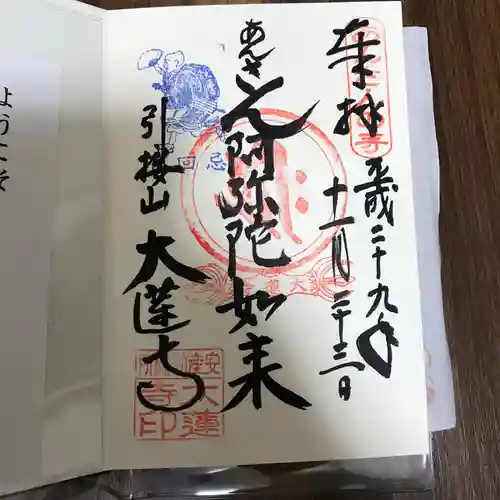 奉拝
平成二十九年
十一月二十三日
あんざん阿弥陀如来
引接山
大蓮寺
回忌
大蓮
寺印
ようこそ